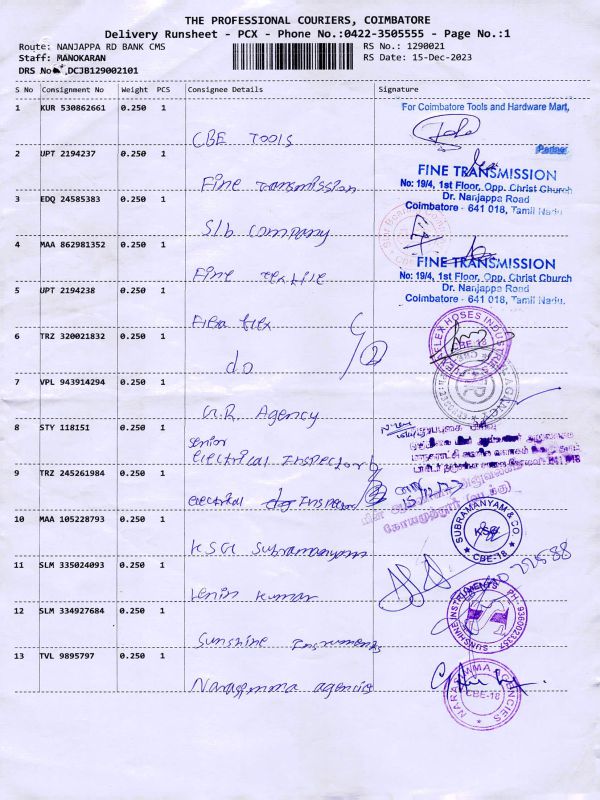 THE PROFESSIONAL COURIERS, COIMBATORE
Delivery Runsheet - PCX - Phone No.:0422-3505555 - Page No.:1
Route: NANJAPPA RD BANK CMS RS No.: 1290021
Staff: MANOKARAN RS Date: 15-Dec-2023
DRS No DCJB129002101
S No Consignment No Weight PCS Consignee Details Signature
1 KUR 530862661 0.250 1 For Coimbatore Tools and Hardware Mart,
CBE TOOLS Partner
2 UPT 2194237 0.250 1
Fine Transmission
FINE TRANSMISSION
No: 19/4, 1st Floor, Opp. Christ Church
Dr. Nanjappa Road
Coimbatore - 641 018, Tamil Nadu
3 EDQ 24585383 0.250 1
S/b Company
4 MAA 862981352 0.250 1
Fine textile
FINE TRANSMISSION
No: 19/4, 1st Floor, Opp. Christ Church
Dr. Nanjappa Road
Coimbatore - 641 018, Tamil Nadu.
5 UPT 2194238 0.250 1
Flexi flex
6 TRZ 320021832 0.250 1
do 2
FLEX HOSES INDUSTRIES
CBE-18
7 VPL 943914294 0.250 1
G.R. Agency
AGENCY
8 STY 118151 0.250 1
Senior
electrical Inspector
9 TRZ 245261984 0.250 1
electrical Inspector
15/12/23
10 MAA 105228793 0.250 1
K.S.G Subramanyam
SUBRAMANYAM & CO.
KSG
CBE-18
11 SLM 335024093 0.250 1
Lenin Kumar
12 SLM 334927684 0.250 1
Sunshine Instruments
SUNSHINE INSTRUMENTS
PH: 9360023357
13 TVL 9895797 0.250 1
Narasimma agencies
NARASIMMA AGENCIES
CBE-18